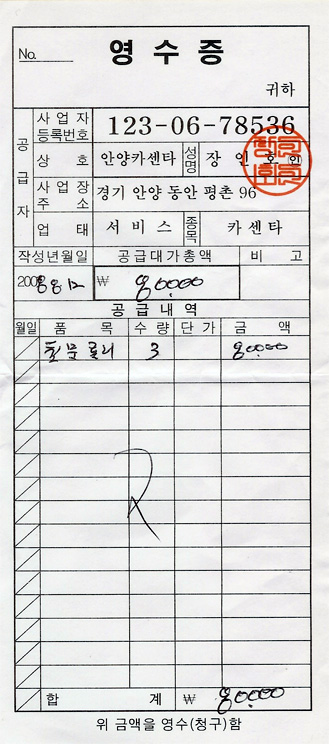 영수증
No.
귀하
공급자
사업자등록번호 123-06-78536
상호 안양카센타 성명 장인호 인
사업장주소 경기 안양 동안 평촌 96
업태 서비스 종목 카센타
작성년월일 공급대가총액 비고
₩ 80000
공급내역
월일 품목 수량 단가 금액
3 80000
합계 ₩ 80000
위 금액을 영수(청구)함